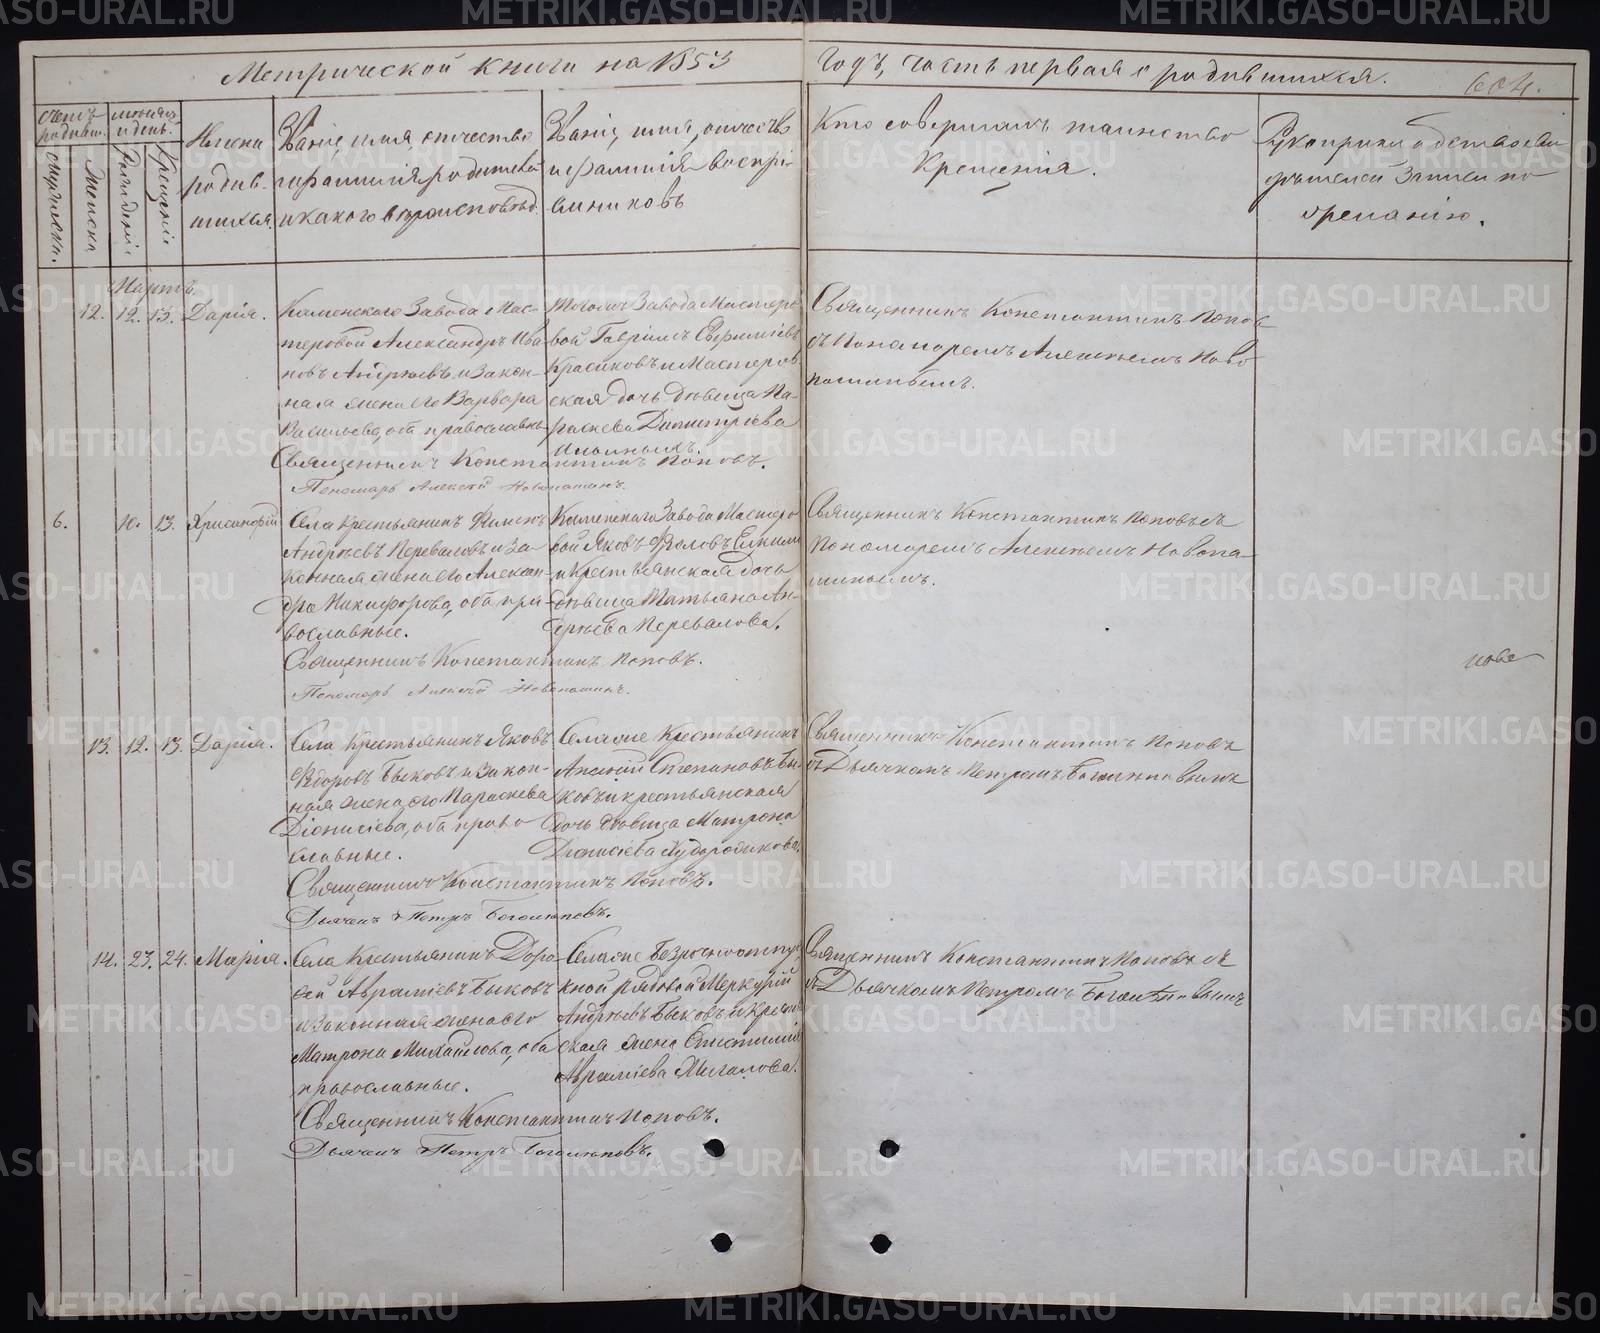 Метрической книги на 1853
годъ, часть первая о родившихся.
604.
счетъ родивш.
мужеска.
женска
мѣсяцъ и день.
рожденія
крещенія
Имена
родив-
шихся.
Званіе, имя, отчество
и фамилія родителей
и какого вѣроисповѣд.
Званіе, имя, отчество
и фамилія воспрі-
емниковъ
Кто совершалъ таинство
крещенія.
Рукоприкладство сви
дѣтелей записи по
желанію.
Мартъ.
12. 12. 13. Дарія.
Каменскаго Завода Мас-
теровой Александръ Ива
новъ Андреевъ и закон-
ная жена его Варвара
Васильева, оба православны
Священникъ Константинъ Поповъ.
Пономарь Алексѣй Новопашинъ.
Тогожъ Завода Мастеро
вой Гавріилъ Евфиміевъ
Красиковъ и Мастеров
ская дочь дѣвица Па-
раскева Димитріева
Ильиныхъ.
Священникъ Константинъ Попов
съ Пономаремъ Алексѣемъ Ново
пашинымъ.
6. 10. 13. Хрисанфій
Села Крестьянинъ Филипъ
Андреевъ Переваловъ и за-
конная жена его Алексан-
дра Никифорова, оба пра-
вославные.
Священникъ Константинъ Поповъ.
Пономарь Алексѣй Новопашинъ.
Каменскаго Завода Мастеро
вой Яковъ Фроловъ
и Крестьянская дочь
дѣвица Татьяна Ан-
дреева Перевалова.
Священникъ Константинъ Поповъ съ
Пономаремъ Алексѣемъ Новопа-
шинымъ.
13. 12. 13. Дарія.
Села Крестьянинъ Яковъ
Ѳедоровъ Быковъ и закон-
ная жена его Параскева
Діонисіева, оба право
славные.
Священникъ Константинъ Поповъ.
Дьячекъ Петръ Боголюповъ.
Села же Крестьянинъ
Степановъ Бы
ковъ и крестьянская
дочь дѣвица Матрона
Діонисіева Худородикова.
Священникъ Константинъ Поповъ
съ Дьячкомъ Петромъ Боголюповымъ
14. 23. 24. Марія.
Села Крестьянинъ Доро
фей Авраміевъ Быковъ
и законная жена его
Матрона Михайлова, оба
православные.
Священникъ Константинъ Поповъ.
Дьячекъ Петръ Боголюповъ.
Села же безсрочноотпу
кной рядовой Меркурій
Андреевъ Быковъ и Крестьян
ская жена Епистимія
Авраміева Жигалова.
Священникъ Константинъ Поповъ съ
съ Дьячкомъ Петромъ Боголюповымъ